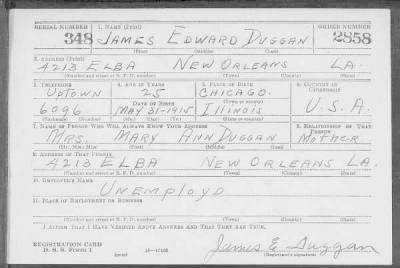 SERIAL NUMBER 1. NAME (Print) ORDER NUMBER
348 JAMES EDWARD DUGGAN 2858
(First) (Middle) (Last)
2. ADDRESS (Print)
4213 ELBA NEW ORLEANS LA.
(Number and street or R. F. D. number) (Town) (County) (State)
3. TELEPHONE 4. AGE IN YEARS 5. PLACE OF BIRTH 6. COUNTRY OF CITIZENSHIP
UPTOWN 25 CHICAGO.
DATE OF BIRTH (Town or county)
6096 MAY-31-1915 ILLINOIS U.S.A.
(Exchange) (Number) (Mo.) (Day) (Yr.) (State or country)
7. NAME OF PERSON WHO WILL ALWAYS KNOW YOUR ADDRESS 8. RELATIONSHIP OF THAT PERSON
MRS. MARY ANN DUGGAN MOTHER
(Mr., Mrs., Miss) (First) (Middle) (Last)
9. ADDRESS OF THAT PERSON
4213 ELBA NEW ORLEANS LA.
(Number and street or R. F. D. number) (Town) (County) (State)
10. EMPLOYER'S NAME
UNEMPLOYD
11. PLACE OF EMPLOYMENT OR BUSINESS
(Number and street or R. F. D. number) (Town) (County) (State)
I AFFIRM THAT I HAVE VERIFIED ABOVE ANSWERS AND THAT THEY ARE TRUE.
REGISTRATION CARD
D. S. S. FORM 1 (over) James E. Duggan
(Registrant's signature)